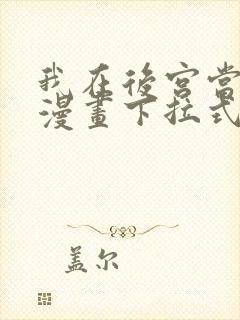 我在後宮當
漫畫下拉式
盖尔